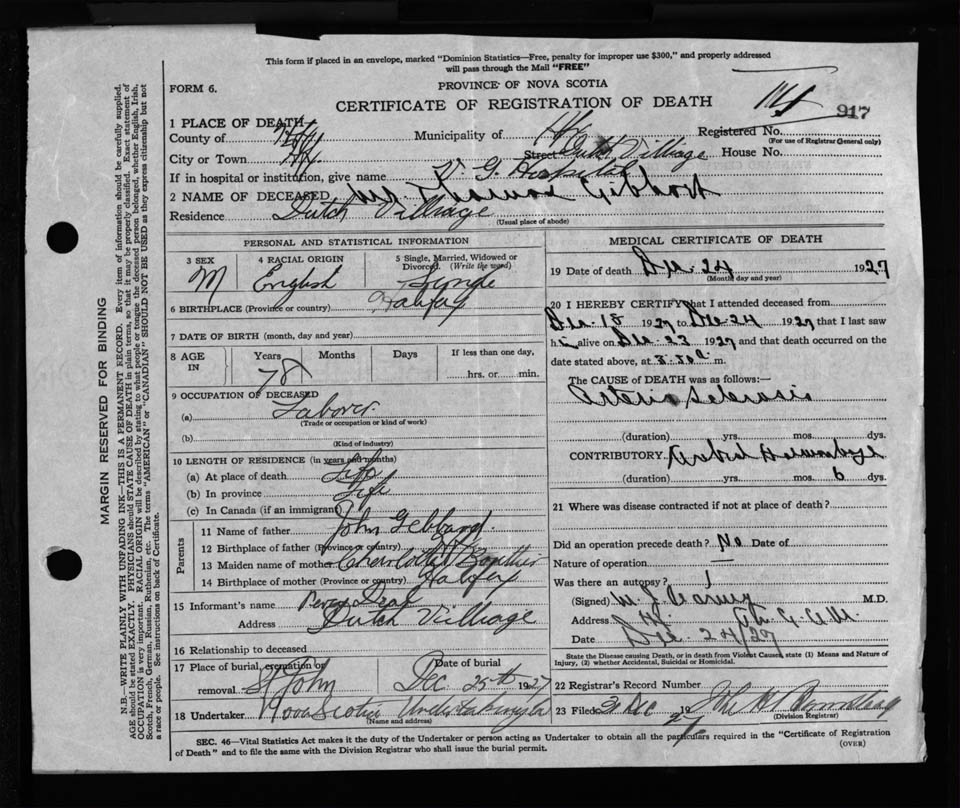 This form if placed in an envelope, marked "Dominion Statistics—Free, penalty for improper use $300," and properly addressed
will pass through the Mail "FREE"
FORM 6.
PROVINCE OF NOVA SCOTIA
CERTIFICATE OF REGISTRATION OF DEATH
917
1 PLACE OF DEATH
County of Hfx Municipality of Registered No.
(For use of Registrar General only)
City or Town Hfx Street Dutch Village House No.
If in hospital or institution, give name V. G. Hospital
2 NAME OF DECEASED Thomas
Residence Dutch Village
(Usual place of abode)
PERSONAL AND STATISTICAL INFORMATION
3 SEX M
4 RACIAL ORIGIN English
5 Single, Married, Widowed or Divorced. (Write the word) Single
6 BIRTHPLACE (Province or country) Halifax
7 DATE OF BIRTH (month, day and year)
8 AGE IN Years 78 Months Days If less than one day, hrs. or min.
9 OCCUPATION OF DECEASED
(a) Laborer
(Trade or occupation or kind of work)
(b)
(Kind of industry)
10 LENGTH OF RESIDENCE (in years and months)
(a) At place of death Life
(b) In province Life
(c) In Canada (if an immigrant)
Parents
11 Name of father John Gebhard
12 Birthplace of father (Province or country)
13 Maiden name of mother Charlotte
14 Birthplace of mother (Province or country) Halifax
15 Informant's name Percy
Address Dutch Village
16 Relationship to deceased
17 Place of burial, cremation or removal St John Date of burial Dec. 25th 1927
18 Undertaker Nova Scotia Undertaking Co
(Name and address)
MEDICAL CERTIFICATE OF DEATH
19 Date of death Dec. 24 1927
(Month, day and year)
20 I HEREBY CERTIFY that I attended deceased from
Dec. 18 1927 to Dec. 24 1927 that I last saw
him alive on Dec. 23 1927 and that death occurred on the
date stated above, at m.
The CAUSE OF DEATH was as follows:
Arterio Sclerosis
(duration) yrs. mos. dys.
CONTRIBUTORY
(duration) yrs. mos. 6 dys.
21 Where was disease contracted if not at place of death?
Did an operation precede death? No Date of
Nature of operation
Was there an autopsy?
(Signed) W. J. M.D.
Address
Date Dec. 24/27
State the Disease causing Death, or in death from Violent Causes, state (1) Means and Nature of
Injury, (2) whether Accidental, Suicidal or Homicidal.
22 Registrar's Record Number
23 Filed 31 Dec 1927
(Division Registrar)
SEC. 46—Vital Statistics Act makes it the duty of the Undertaker or person acting as Undertaker to obtain all the particulars required in the "Certificate of Registration
of Death" and to file the same with the Division Registrar who shall issue the burial permit.
(OVER)
MARGIN RESERVED FOR BINDING
N.B.—WRITE PLAINLY WITH UNFADING INK—THIS IS A PERMANENT RECORD. Every item of information should be carefully supplied.
AGE should be stated EXACTLY. PHYSICIANS should STATE CAUSE OF DEATH in plain terms, so that it may be properly classified. Exact statement of
OCCUPATION is very important. RACIAL ORIGIN will be described by stating to what people or tongue the deceased person belonged, whether English, Irish,
Scotch, French, German, Russian, Ruthenian, etc. The terms "AMERICAN" or "CANADIAN" SHOULD NOT BE USED as they express citizenship but not
a race or people. See instructions on back of Certificate.